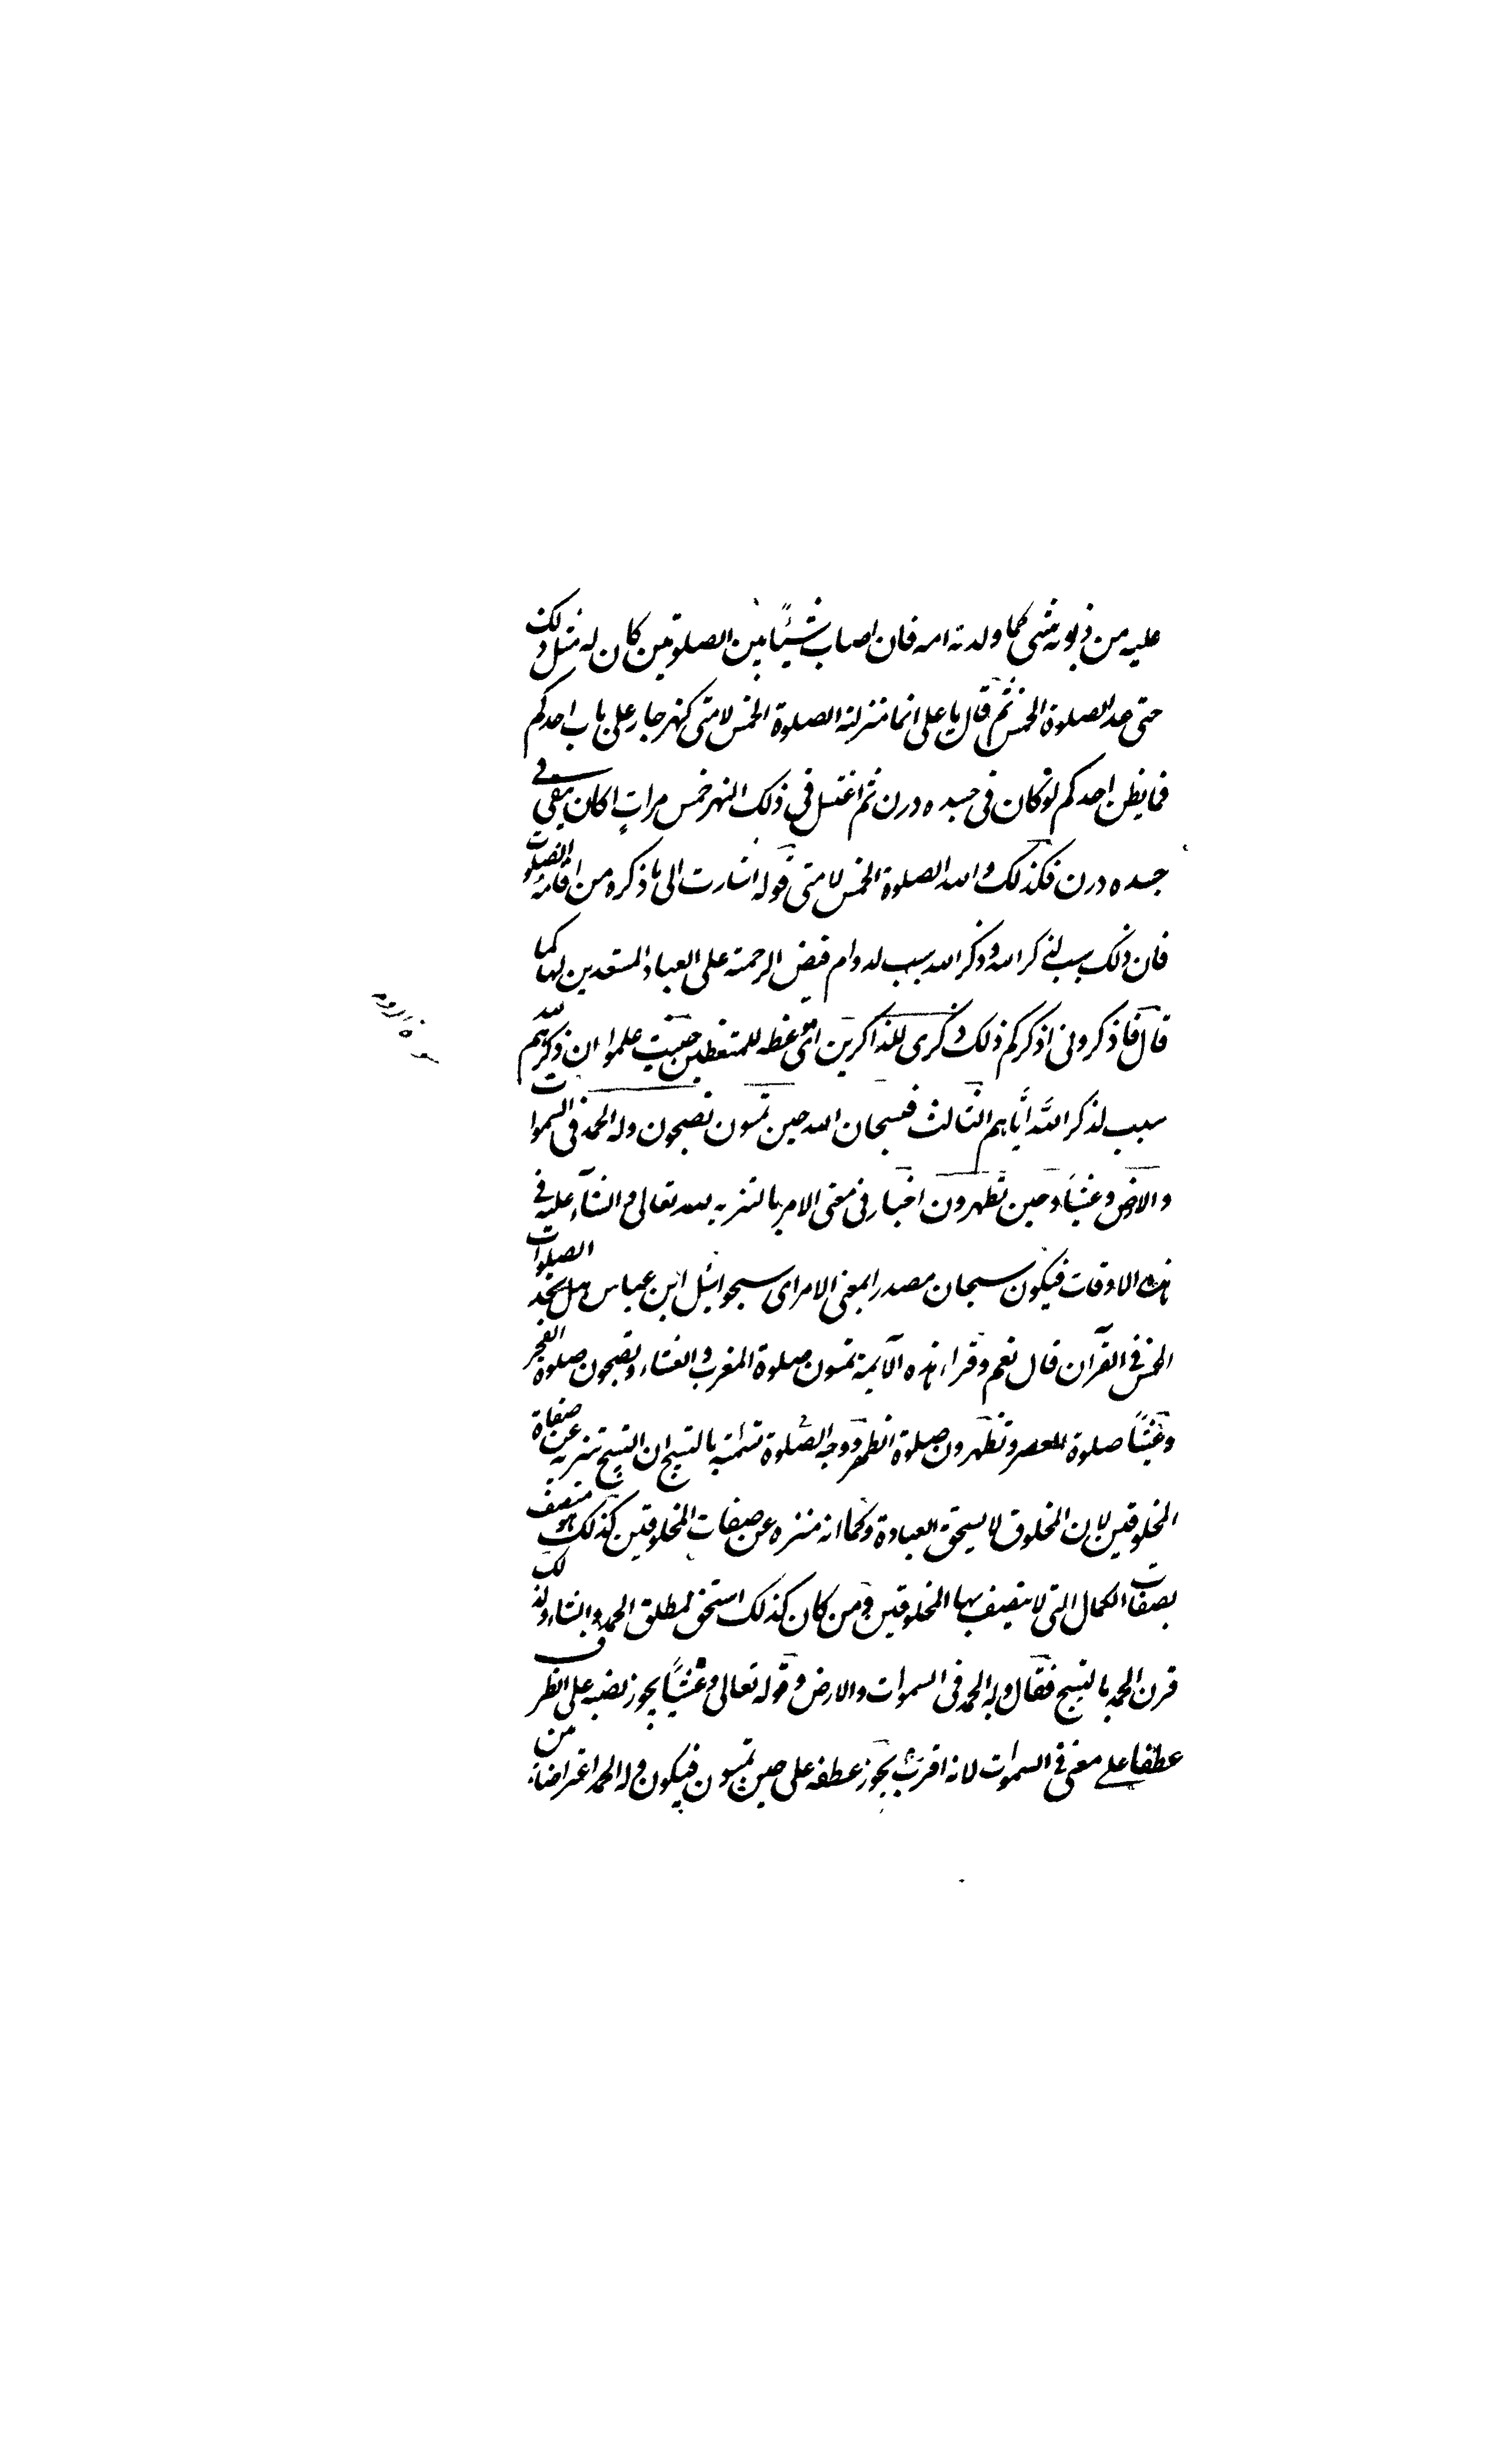 عليه من ذنوبه شئ كما ولدته امه فان اصاب شيئًا بين الصلوتين كان له مثل ذلك
حتى عد الصلوة الخمس ثم قال يا على انما منزلة الصلوة الخمس لامتى كنهر جار على باب احدكم
فما يظن احدكم لو كان فى جسده درن ثم اغتسل فى ذلك النهر خمس مرات اكان يبقى فى
جسده درن فكذلك والله الصلوة الخمس لامتى قوله اشارت الى ما ذكره من اقامة الصلوت
فان ذلك سبب لذكر الله وذكر الله سبب لدوام فيض الرحمة على العباد المستعدين لها كما
قال فاذكرونى اذكركم ذلك ذكرى للذاكرين اى موعظه للمتعظين حيث علموا ان ذكرهم لله
سبب لذكر الله اياهم الثالث فسبحان الله حين تمسون تصبحون وله الحمد فى السموات
والارض وعشيًا وحين تظهرون اخبار فى معنى الامر بالتنزيه لله تعالى والثنآء عليه فى
هذه الاوقات فيكون سبحان مصدر بمعنى الامر اى سبحوا سئل ابن عباس هل تجد الصلوات
الخمس فى القرآن قال نعم وقراء هذه الآية تمسون صلوة المغرب والعشاء وتصبحون صلوة الفجر
وعشيًا صلوة العصر وتظهرون صلوة الظهر ووجه الصلوة تسمية بالتسبيح ان التسبيح تنزيه عن صفاة
المخلوقين لان المخلوق لا يستحق العبادة وكما انه منزه عن صفات المخلوقين كذلك هو متصف
بصفات الكمال التى لا يتصف بها المخلوقين ومن كان كذلك استحق لمطلق الحمد والثناء ولذلك
قرن الحمد بالتسبيح فقال وله الحمد فى السموات والارض وقوله تعالى وعشيًا يجوز نصبه على الظرف
عطفا على معنى فى السموات لانه اقرب يجوز عطفه على حين تمسون فيكون وله الحمد اعتراضا من